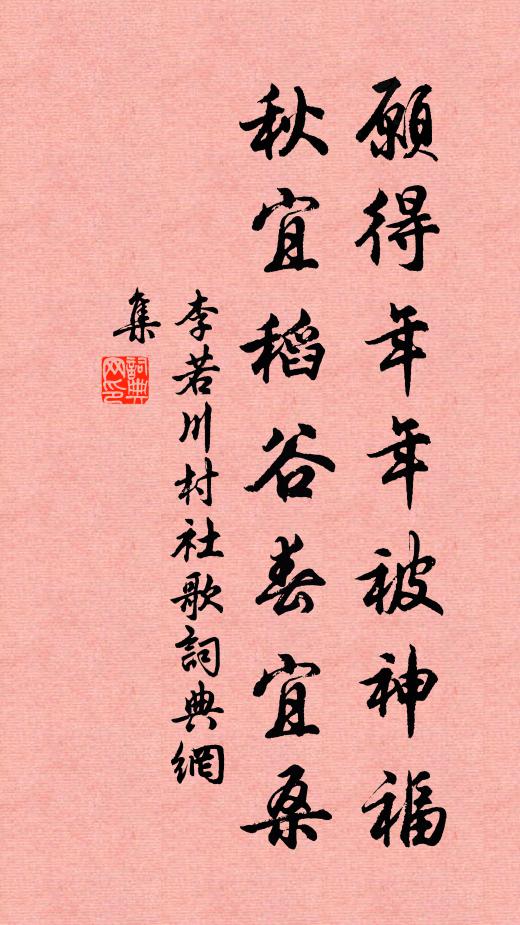 願得年年被神福
秋宜稻谷春宜桑
李若川村社歌詞典網
集
詞典
网印